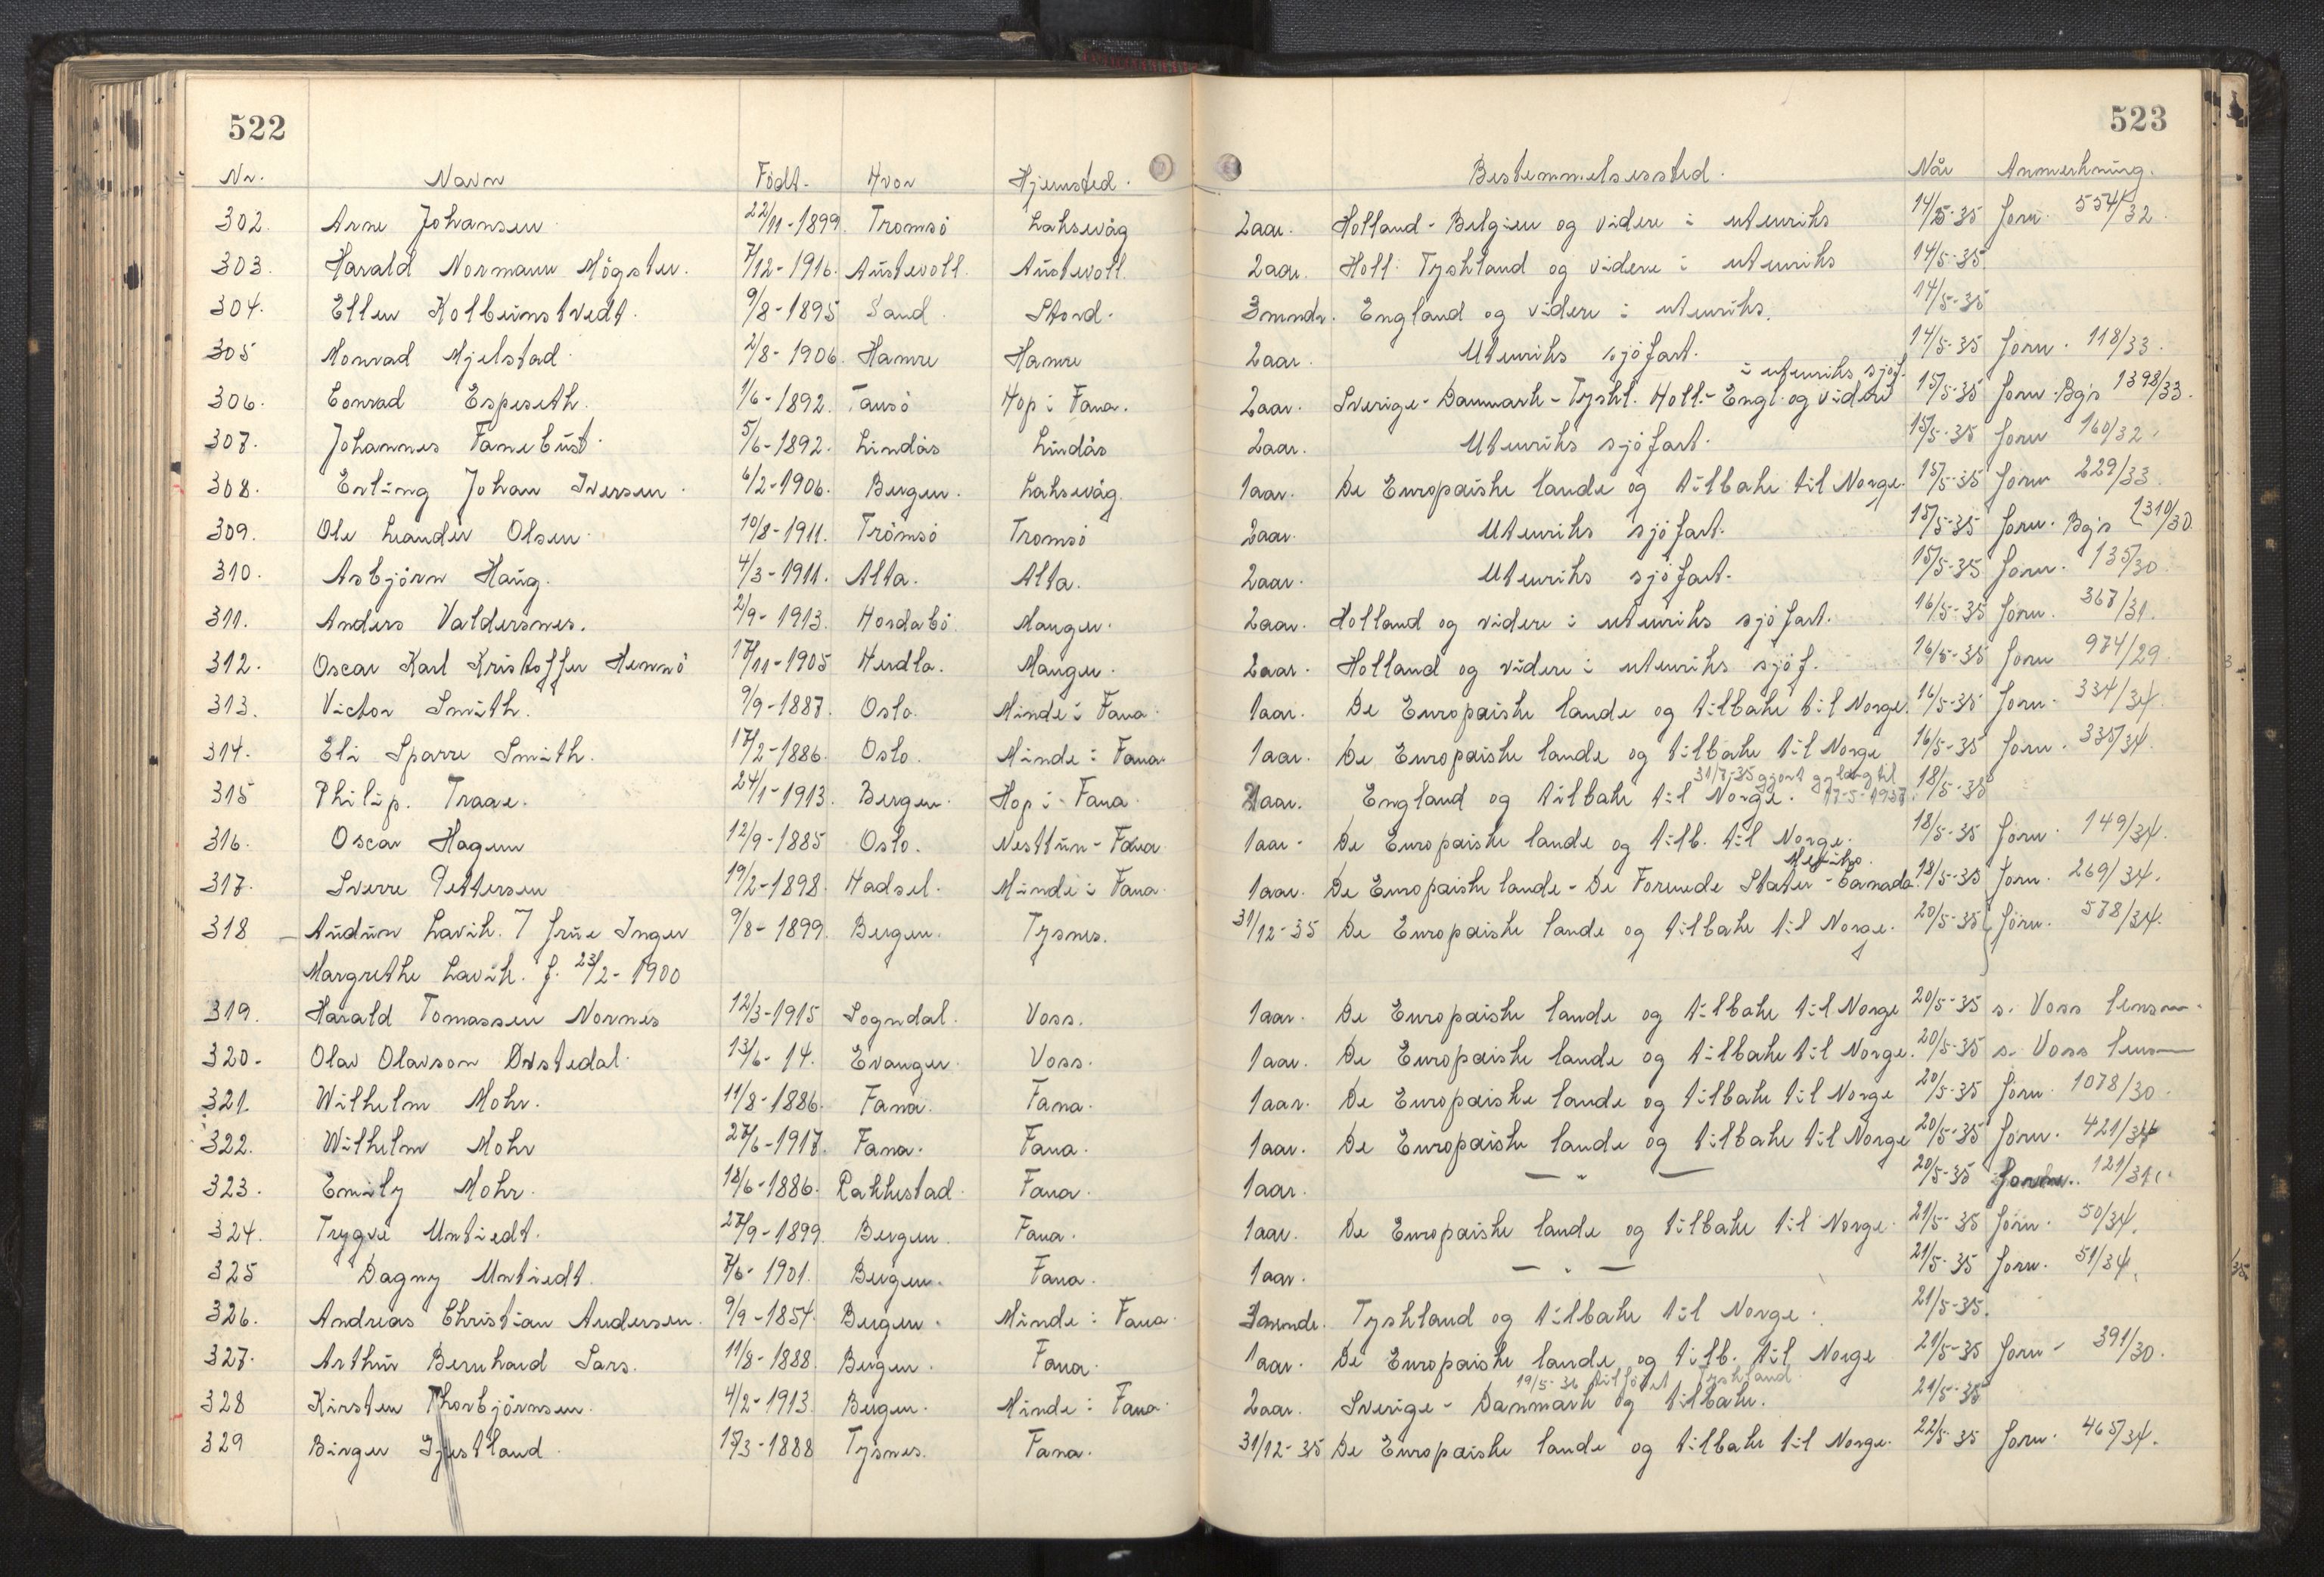 522
523
Nr. Navn Födt. Hvor Hjemsted. Bestemmelsessted. Når Anmerkning.
302. Arne Johansen 22/11-1899. Tromsö Laksevåg 2aar. Holland - Belgien og videre i utenriks 14/5-35 forn. 554/32.
303. Harald Normann Mögster. 7/12-1916. Austevoll. Austevoll. 2aar. Holl. Tyskland og videre i utenriks 14/5-35
304. Ellen Kolbeinstvedt. 9/8-1895 Sand. Stord. 3mndr. England og videre i utenriks. 14/5-35
305 Monrad Mjelstad. 2/8-1906. Hamre Hamre 2aar. Utenriks sjöfart. 14/5-35 forn. 118/33.
i utenriks sjöf.
306. Conrad Espeseth. 1/6-1892. Tausö Hop i Fana. 2aar. Sverige - Danmark - Tyskl. Holl. - Engl. og videre 15/5-35 forn. Bg's 1398/33.
307. Johannes Fanebust. 5/6-1892. Lindås Lindås 2aar. Utenriks sjöfart. 15/5-35 forn 160/32.
308. Erling Johan Iversen. 6/2-1906. Bergen. Laksevåg. 1aar. De Europæiske lande og tilbake til Norge. 15/5-35 forn 229/33.
309. Ole Leander Olsen. 10/8-1911. Tromsö Tromsö 2aar. Utenriks sjöfart. 15/5-35 forn. Bg's 1310/30
310. Asbjörn Haug. 4/3-1911. Alta. Alta. 2aar. Utenriks sjöfart. 15/5-35 forn. 135/30.
311. Anders Valdersnes. 2/9-1913. Hordabö Manger. 2aar. Holland og videre i utenriks sjöfart. 16/5-35 forn. 367/31.
312. Oscar Karl Kristoffer Hennö 17/11-1905 Herdla. Manger. 2aar. Holland og videre i utenriks sjöf. 16/5-35 forn 974/29
313. Victor Smith. 9/9-1887. Oslo. Minde i Fana. 1aar. De Europæiske lande og tilbake til Norge. 16/5-35 forn. 334/34.
314. Eli Sparre Smith. 17/2-1886. Oslo. Minde i Fana. 1aar. De Europæiske lande og tilbake til Norge 16/5-35 forn. 335/34.
31/7-35 gjort gylding til
315 Philip. Traae. 24/1-1913. Bergen. Hop i Fana. 2aar. England og tilbake til Norge. 17-5-1937. 18/5-35
316. Oscar Hagem 12/9-1885 Oslo. Nesttun - Fana. 1aar. De Europæiske lande og tilb. til Norge. 18/5-35 forn. 149/34.
Mexiko.
317. Sverre Pettersen 19/2-1898. Hadsel. Minde i Fana. 1aar. De Europæiske lande - De Forenede Stater - Canada. 18/5-35 forn. 269/34.
318 Audun Lavik. 7 frue Inger 9/8-1899. Bergen. Tysnes. 31/12-35 De Europæiske lande og tilbake til Norge. 20/5-35 forn. 578/34.
Margrethe Lavik. f. 23/2-1900
319. Harald Tomassen Nornes 12/3-1915 Sogndal. Voss. 1aar. De Europæiske lande og tilbake til Norge 20/5-35 s. Voss lensm.
320. Olav Olavson Orstedal. 13/6-14. Evanger. Voss. 1aar. De Europæiske lande og tilbake til Norge. 20/5-35 s. Voss lensm
321. Wilhelm Mohr. 11/8-1886. Fana. Fana. 1aar. De Europæiske lande og tilbake til Norge 20/5-35 forn. 1078/30.
322. Wilhelm Mohr 27/6-1917. Fana. Fana. 1aar. De Europæiske lande og tilbake til Norge 20/5-35 forn. 421/34
323. Emily Mohr. 18/6-1886. Rakkestad Fana. 1aar. — " — 20/5-35 forn. 121/31.
324. Trygve Untiedt. 27/9-1899. Bergen. Fana. 1aar. De Europæiske lande og tilbake til Norge. 21/5-35 forn. 50/34.
325 Dagny Untiedt. 7/6-1901. Bergen. Fana. 1aar. — " — 21/5-35 forn. 51/34.
326. Andreas Christian Andersen. 9/9-1854. Bergen. Minde i Fana. 3mndr. Tyskland og tilbake til Norge. 21/5-35.
327. Arthur Bernhard Sars. 11/8-1888. Bergen. Fana. 1aar. De Europæiske lande og tilb. til Norge 21/5-35 forn - 391/30.
19/5-36 tilföiet Tyskland
328 Kirsten Thorbjörnsen. 4/2-1913. Bergen. Minde i Fana. 2aar. Sverige - Danmark og tilbake. 21/5-35
329 Birger Gjestland. 15/3-1888 Tysnes. Fana. 31/12-35 De Europæiske lande og tilbake til Norge. 22/5-35 forn. 465/34.